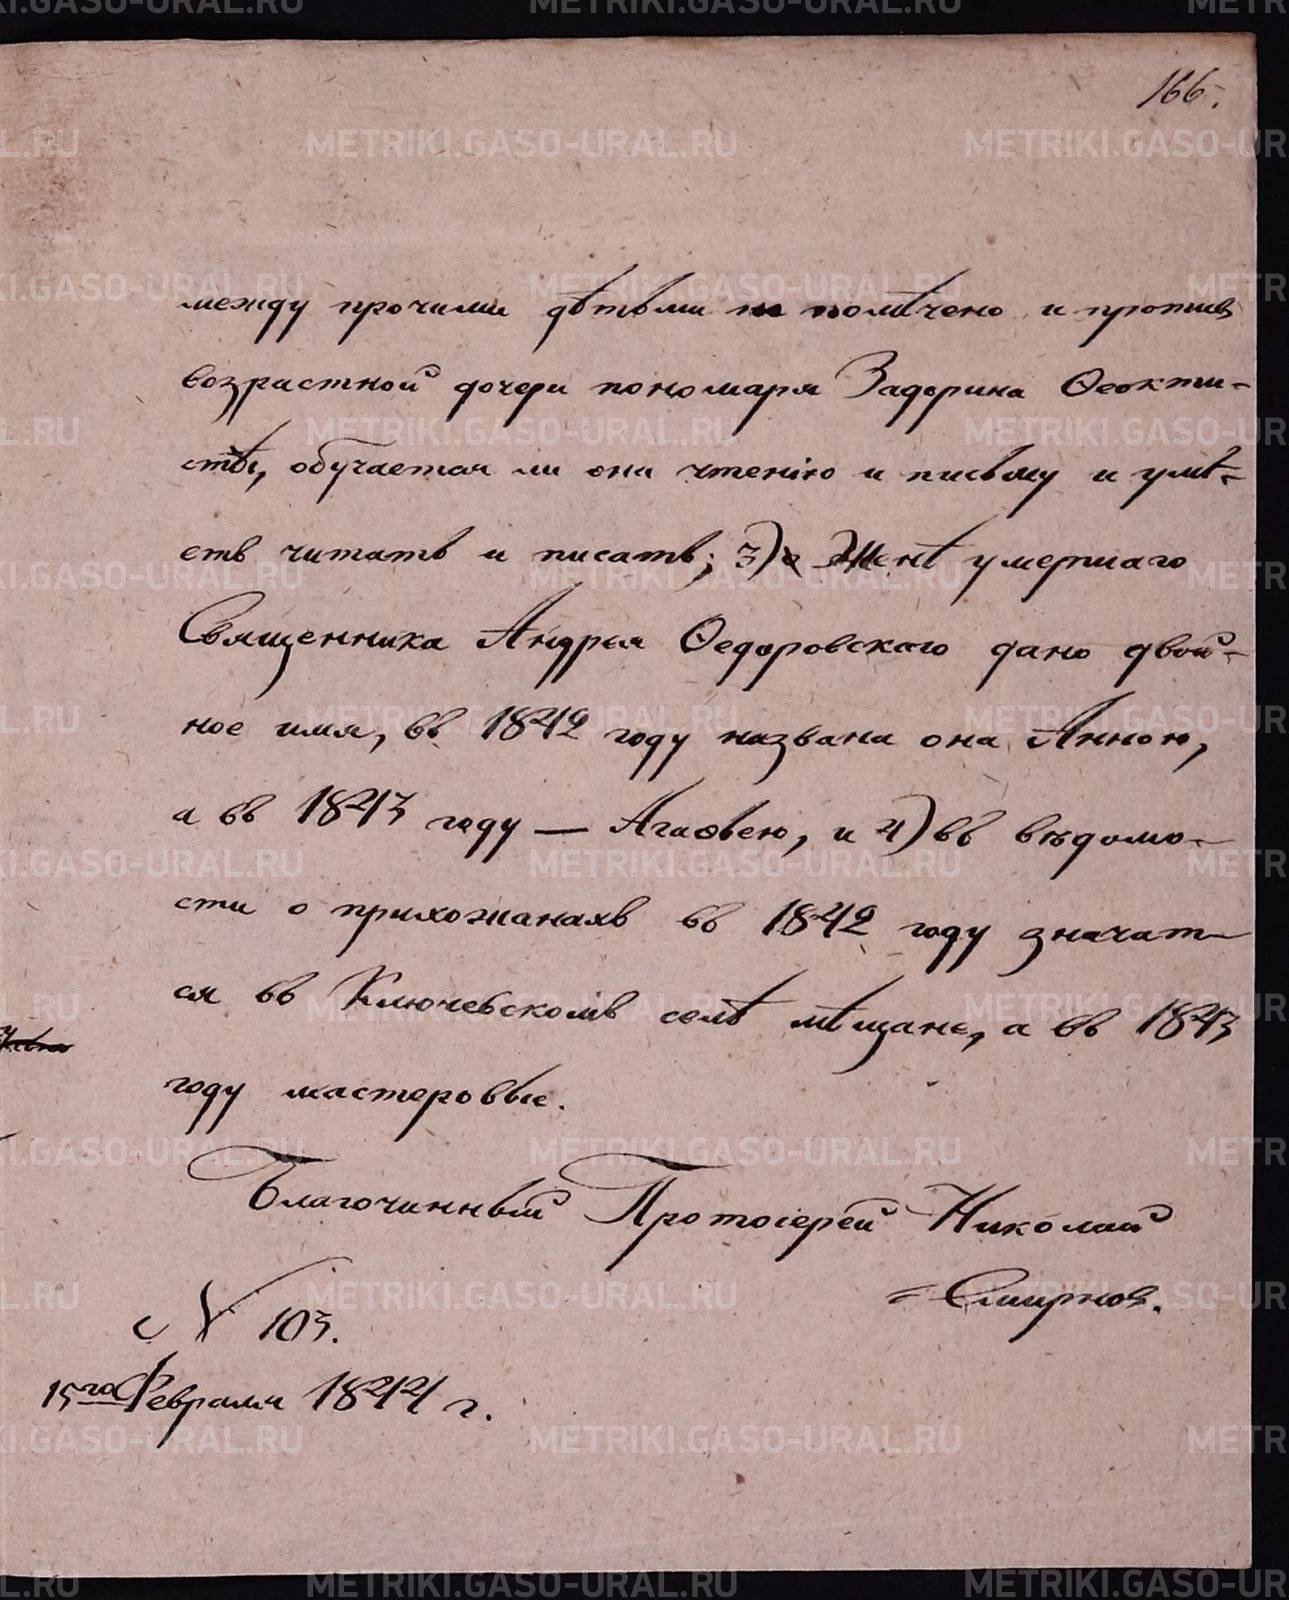 166.
между прочими дѣтьми не помѣчено и против
возрастной дочери пономаря Задорина Ѳеокти-
сты, обучается ли она чтенію и письму и умѣ-
етъ читать и писать; 3) Женѣ умершаго
Священника Андрея Ѳедоровскаго дано двой-
ное имя, въ 1842 году названа она Анною,
а въ 1843 году — Агафьею, и 4) въ вѣдомо-
сти о прихожанахъ въ 1842 году значат-
ся въ Ключевскомъ селѣ мѣщане, а въ 1843
году мастеровые.
Благочинный Протоіерей Николай
Смирнов.
№ 103.
15го Февраля 1844 г.
METRIKI.GASO-URAL.RU